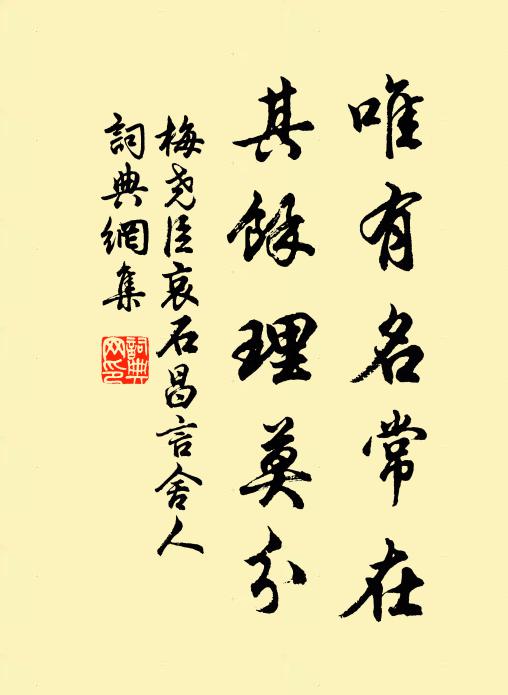 唯有名常在
其餘理莫分
梅堯臣哀石昌言舍人
詞典網集
詞典網印